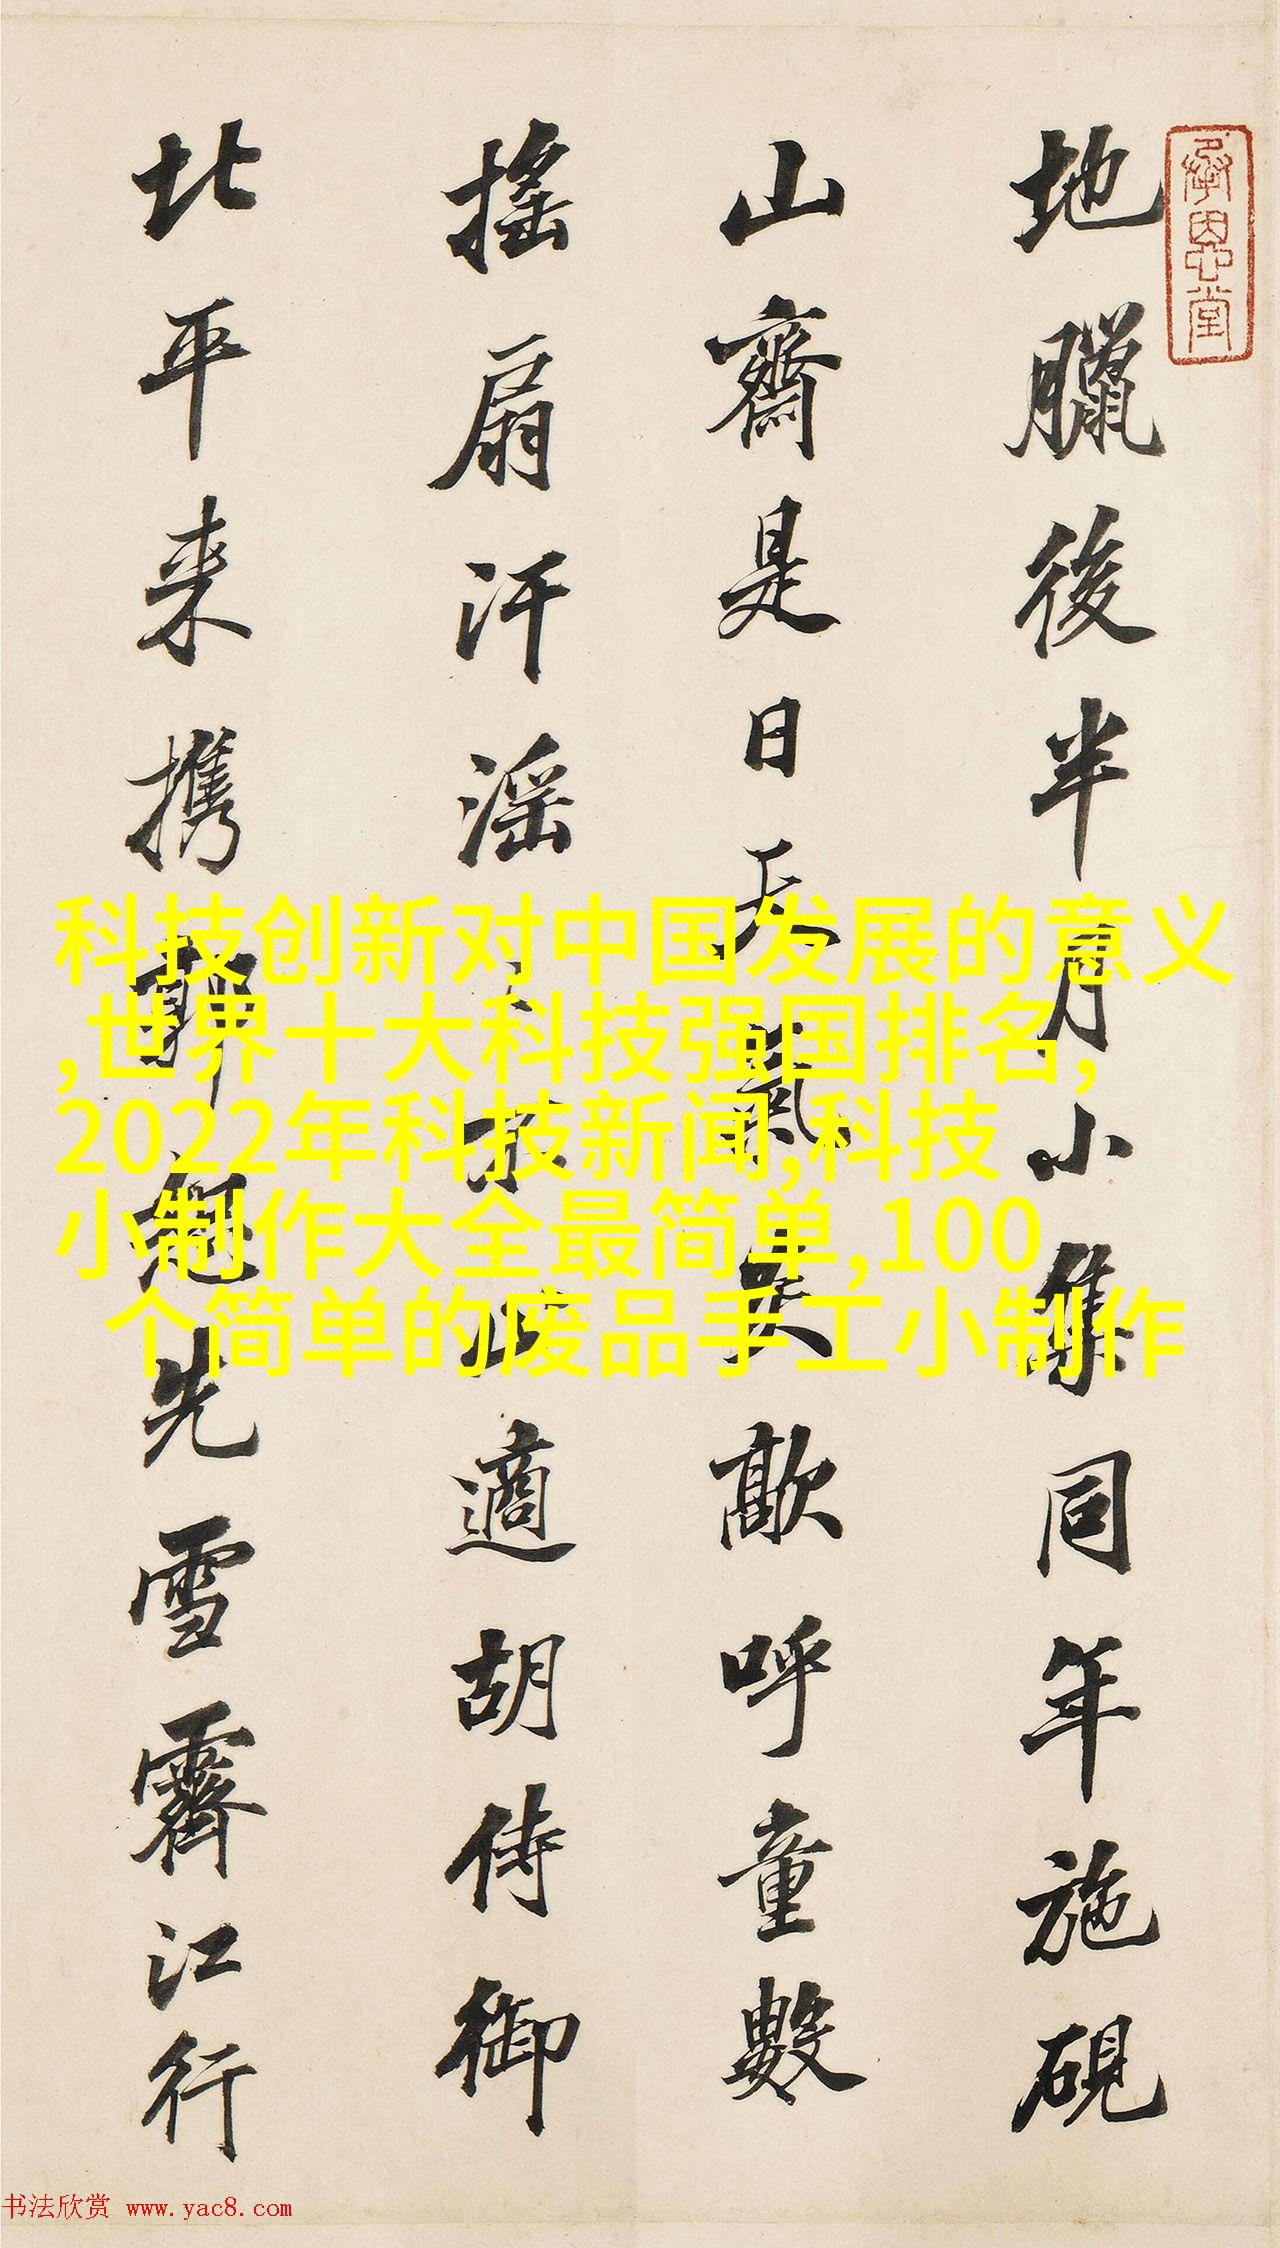 承恩堂
地臘後半月小集同年施硯
山齋是日天氣炎歊呼童數
搖扇汗滛〻不止適胡侍御
北平来携郭恕先雪霽江行
科技创新对中国发展的意义
,世界十大科技强国排名,
2022年科技新闻,科技
小制作大全最简单,100
个简单的废品手工小制作
书法欣赏 www.yac8.com